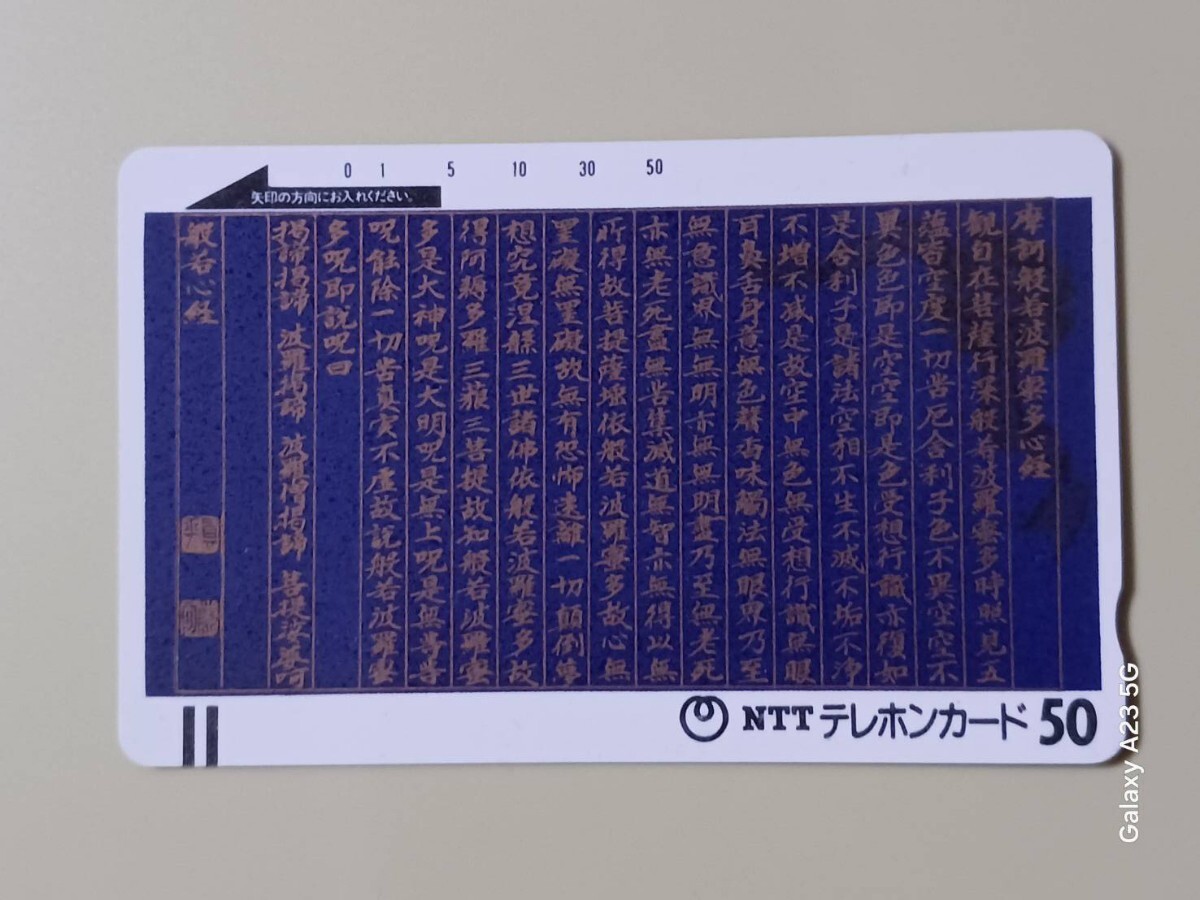 0 1 5 10 30 50
矢印の方向にお入れください。
摩訶般若波羅蜜多心経
観自在菩薩行深般若波羅蜜多時照見五
蘊皆空度一切苦厄舎利子色不異空空不
異色色即是空空即是色受想行識亦復如
是舎利子是諸法空相不生不滅不垢不浄
不増不減是故空中無色無受想行識無眼
耳鼻舌身意無色聲香味觸法無眼界乃至
無意識界無無明亦無無明盡乃至無老死
亦無老死盡無苦集滅道無智亦無得以無
所得故菩提薩埵依般若波羅蜜多故心無
罣礙無罣礙故無有恐怖遠離一切顛倒夢
想究竟涅槃三世諸佛依般若波羅蜜多故
得阿耨多羅三藐三菩提故知般若波羅蜜
多是大神呪是大明呪是無上呪是無等等
呪能除一切苦真実不虚故説般若波羅蜜
多呪即説呪曰
揭諦揭諦 波羅揭諦 波羅僧揭諦 菩提娑婆訶
般若心経
NTT テレホンカード 50
Galaxy A23 5G